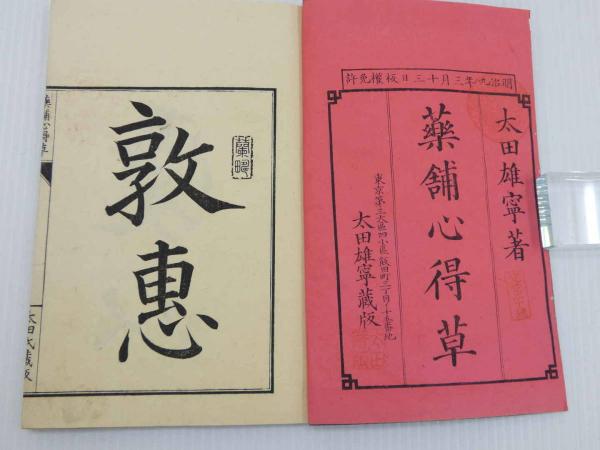 明治九年三月十三日板權免許
太田雄寧著
藥舖心得草
東京第三大區四小區飯田町二丁目十五番地
太田雄寧藏版
蘭疇
敦惠
藥舖心得草
太田氏藏版